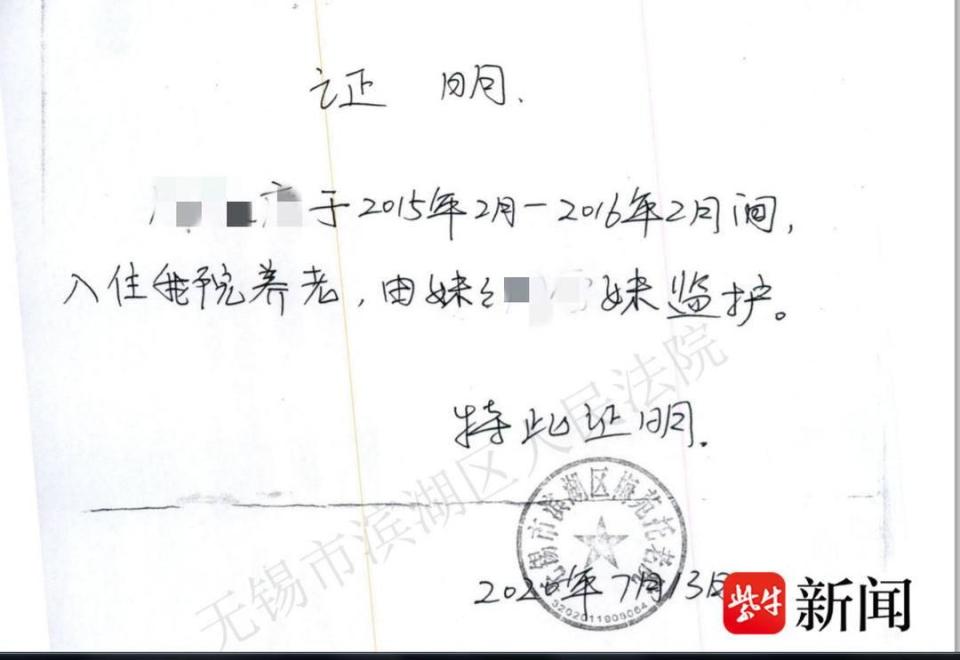 证 明.
于2015年2月-2016年2月间,
入住我院养老,由妹 妹监护。
特此证明.
无锡市滨湖区人民法院
无锡市滨湖区 托老
年7月13日
紫牛新闻